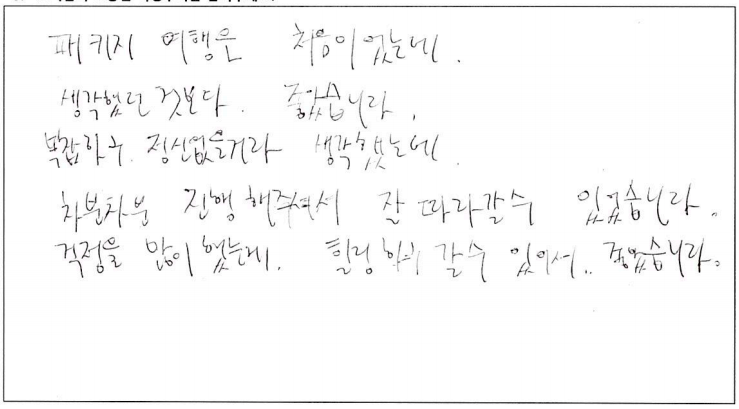 패키지 여행은 처음이었는데.
생각했던 것보다. 좋았습니다.
복잡하구. 정신없을거라 생각했는데.
차분차분 진행해주셔서 잘 따라갈수 있었습니다.
걱정을 많이 했는데. 힐링하고 갈수 있어서.. 좋았습니다.